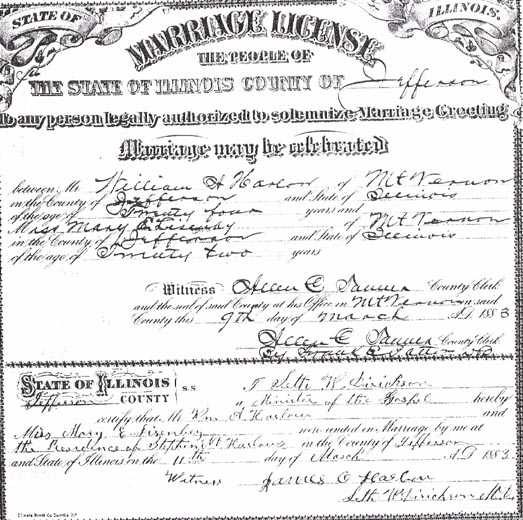 STATE OF ILLINOIS.
MARRIAGE LICENSE.
THE PEOPLE OF
THE STATE OF ILLINOIS COUNTY OF Jefferson
To any person legally authorized to solemnize Marriage Greeting
Marriage may be celebrated
between Mr William A Harlow of Mt Vernon
in the County of Jefferson and State of Illinois
of the age of Twenty four years and
Miss Mary E of Mt Vernon
in the County of Jefferson and State of Illinois
of the age of Twenty two years
Witness Allen C Tanner County Clerk
and the seal of said County at his Office in Mt Vernon in said
County this 9th day of March A.D. 1883
Allen C Tanner County Clerk
By
STATE OF ILLINOIS
Jefferson COUNTY
S.S
I Seth W Dirickson
a Minister of the Gospel hereby
certify that Mr Wm A Harlow and
Miss Mary E were united in Marriage by me at
the Residence of Harlow in the County of Jefferson
and State of Illinois on the 11th day of March A.D 1883
Witness James O Harlow
Seth W Dirickson M.G.